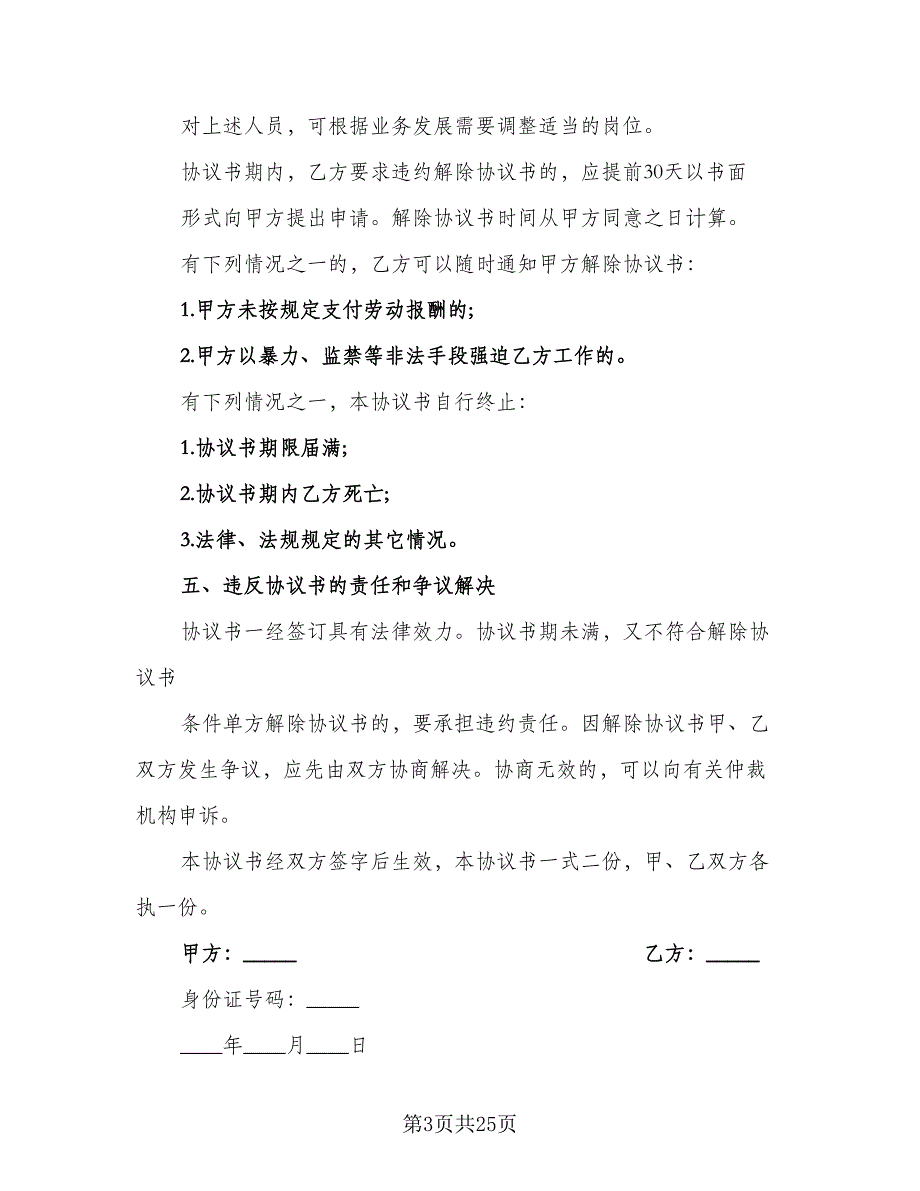 对上述人员，可根据业务发展需要调整适当的岗位。
协议书期内，乙方要求违约解除协议书的，应提前30天以书面
形式向甲方提出申请。解除协议书时间从甲方同意之日计算。
有下列情况之一的，乙方可以随时通知甲方解除协议书：
1.甲方未按规定支付劳动报酬的;
2.甲方以暴力、监禁等非法手段强迫乙方工作的。
有下列情况之一，本协议书自行终止：
1.协议书期限届满;
2.协议书期内乙方死亡;
3.法律、法规规定的其它情况。
五、违反协议书的责任和争议解决
协议书一经签订具有法律效力。协议书期未满，又不符合解除协
议书
条件单方解除协议书的，要承担违约责任。因解除协议书甲、乙
双方发生争议，应先由双方协商解决。协商无效的，可以向有关仲裁
机构申诉。
本协议书经双方签字后生效，本协议书一式二份，甲、乙双方各
执一份。
甲方：_____ 乙方：_____
身份证号码：_____
____年____月____日
第3页共25页